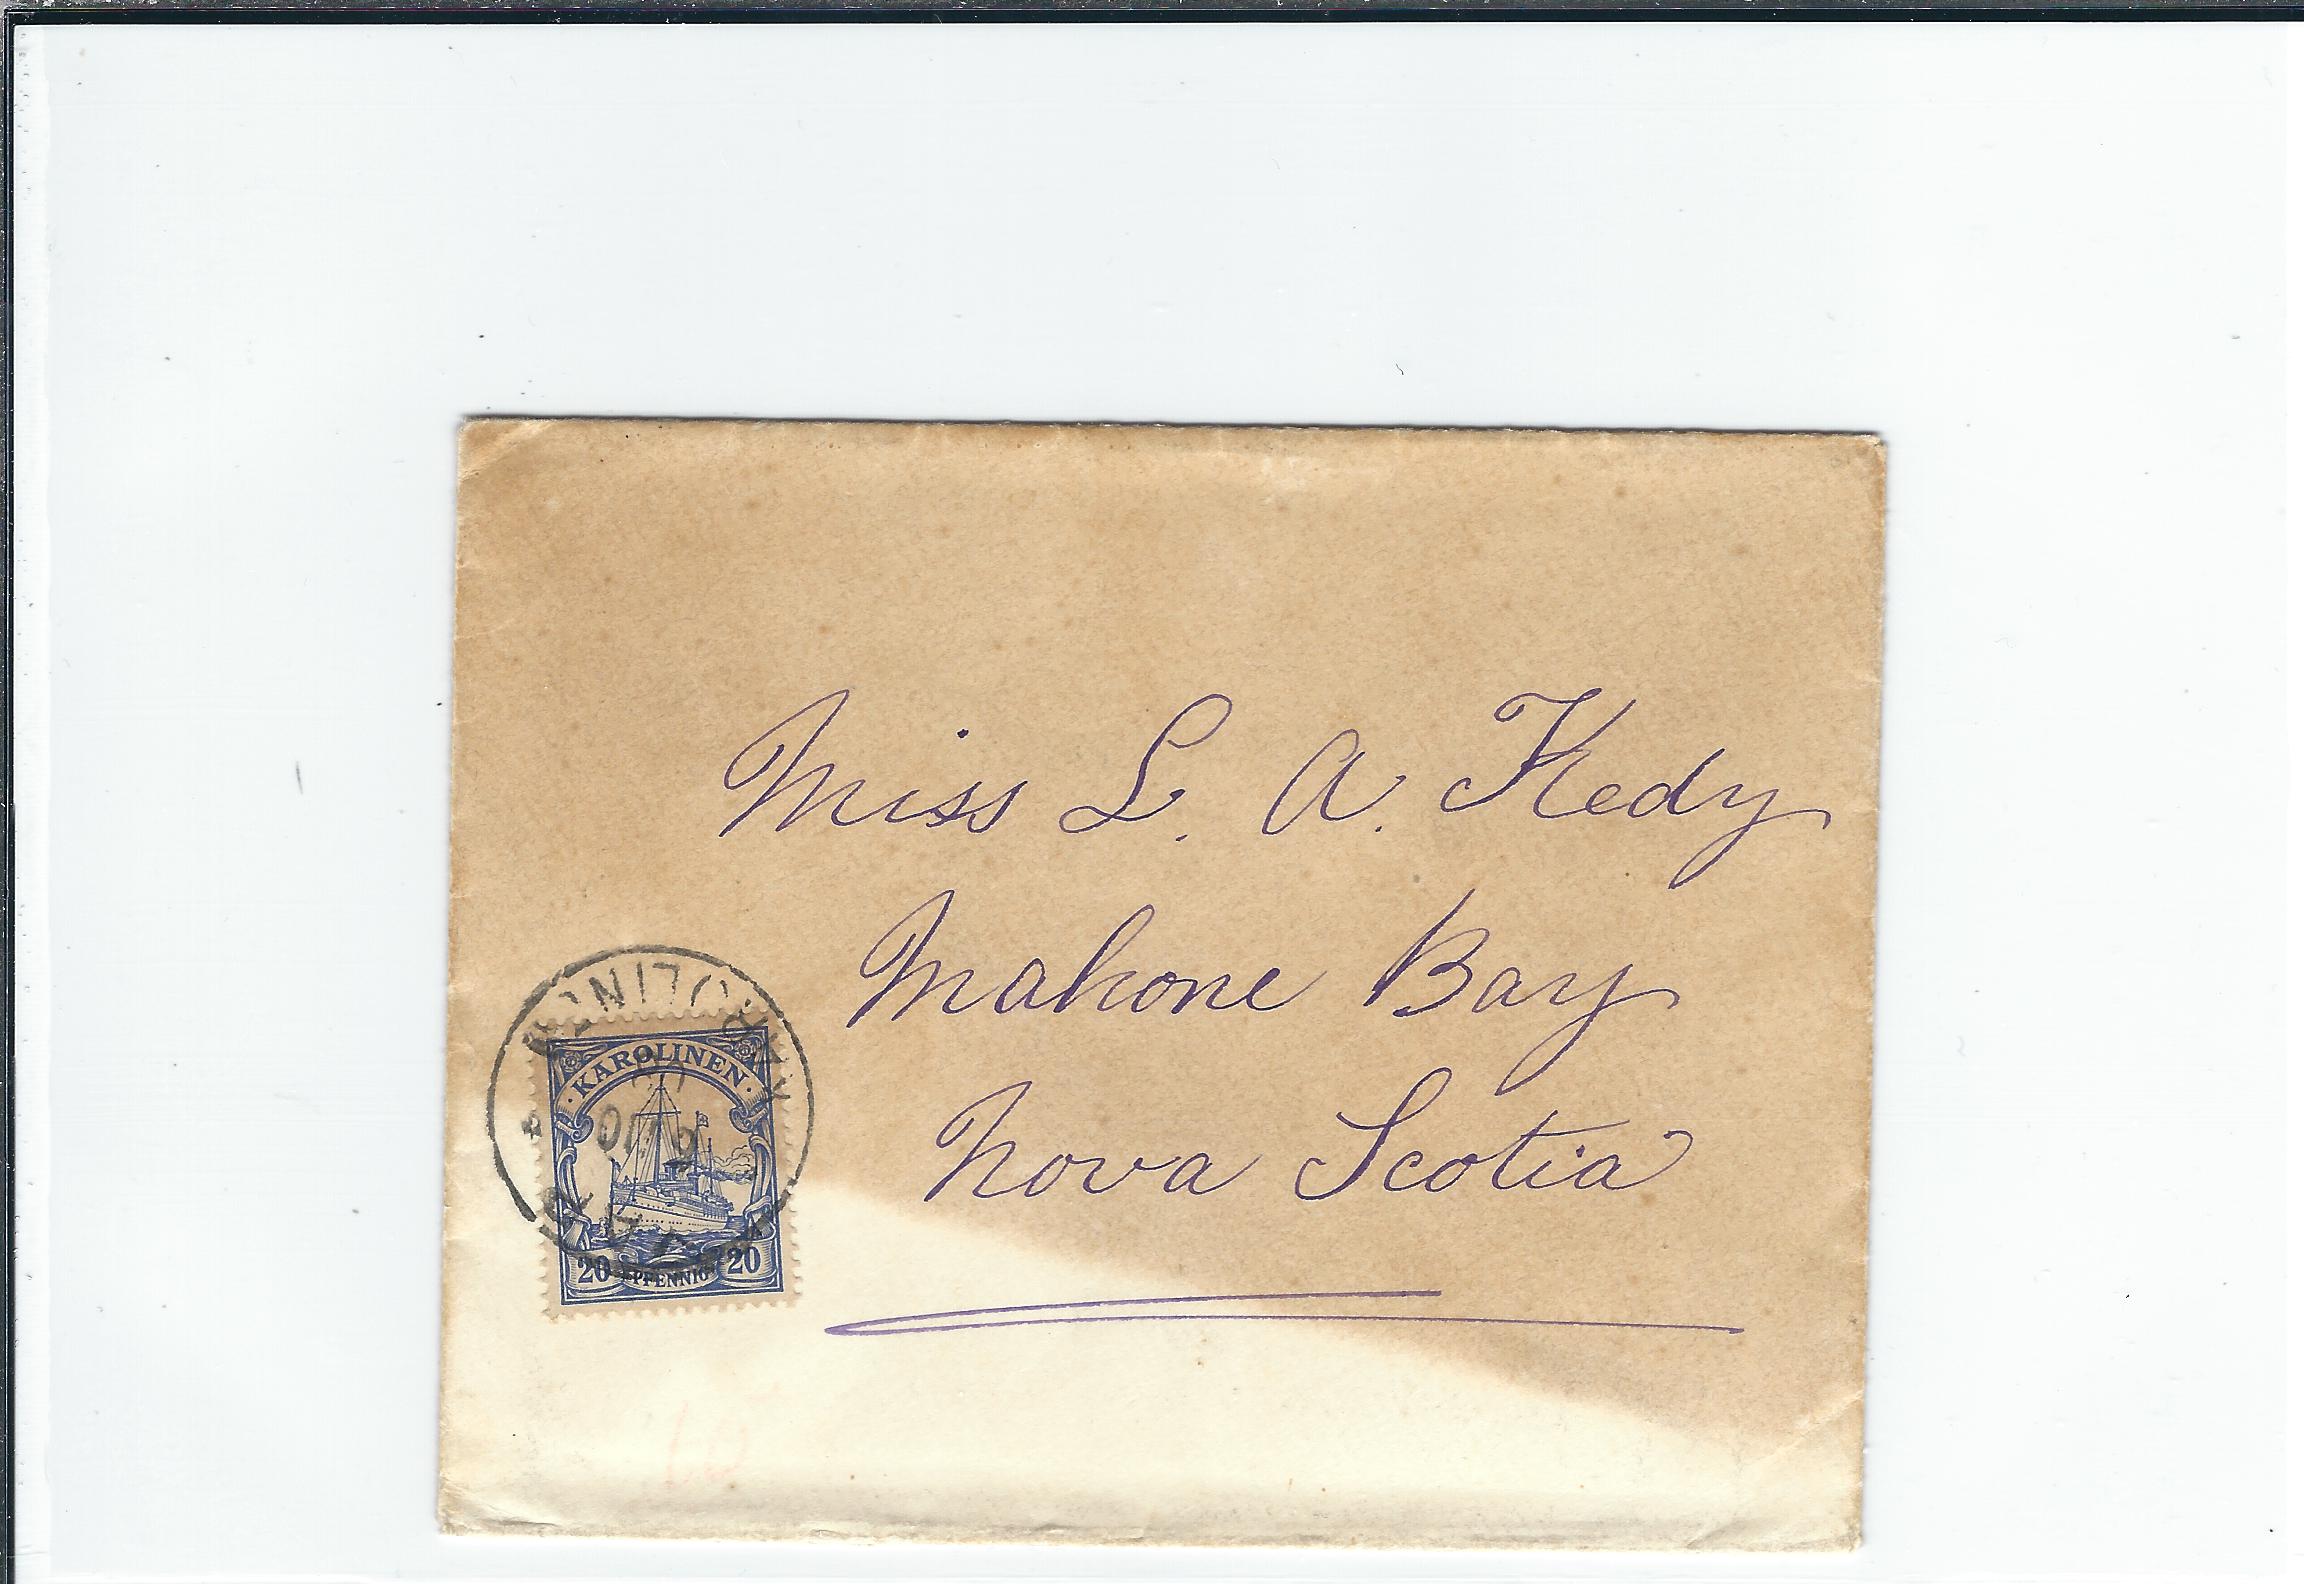 Miss L. A. Kedy
Mahone Bay
Nova Scotia
KAROLINEN
20 PFENNIG 20